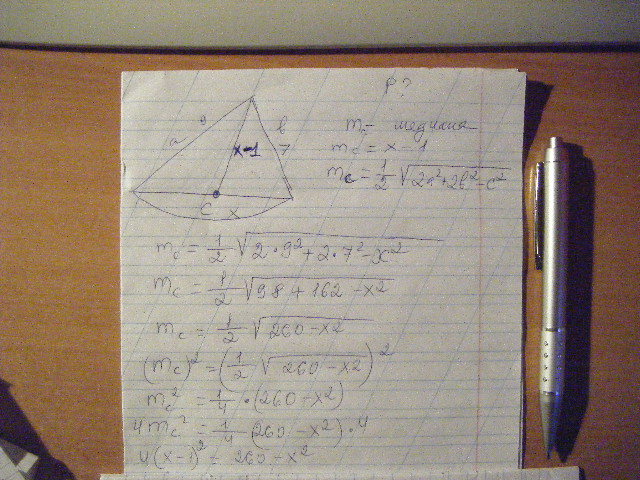 P?
9
a
b
7
x-1
C
x
m - медиана
mc = x - 1
mc = 1/2 √2a²+2b²-c²
mc = 1/2 √2·9²+2·7²-x²
mc = 1/2 √98+162-x²
mc = 1/2 √260-x²
(mc)² = (1/2 √260-x²)²
mc² = 1/4 ·(260-x²)
4mc² = 1/4 (260-x²)·4
4(x-1)² = 260-x²